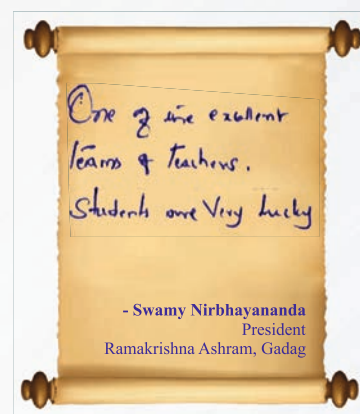 One of the excellent
teams of Teachers.
Students are Very Lucky
- Swamy Nirbhayananda
President
Ramakrishna Ashram, Gadag